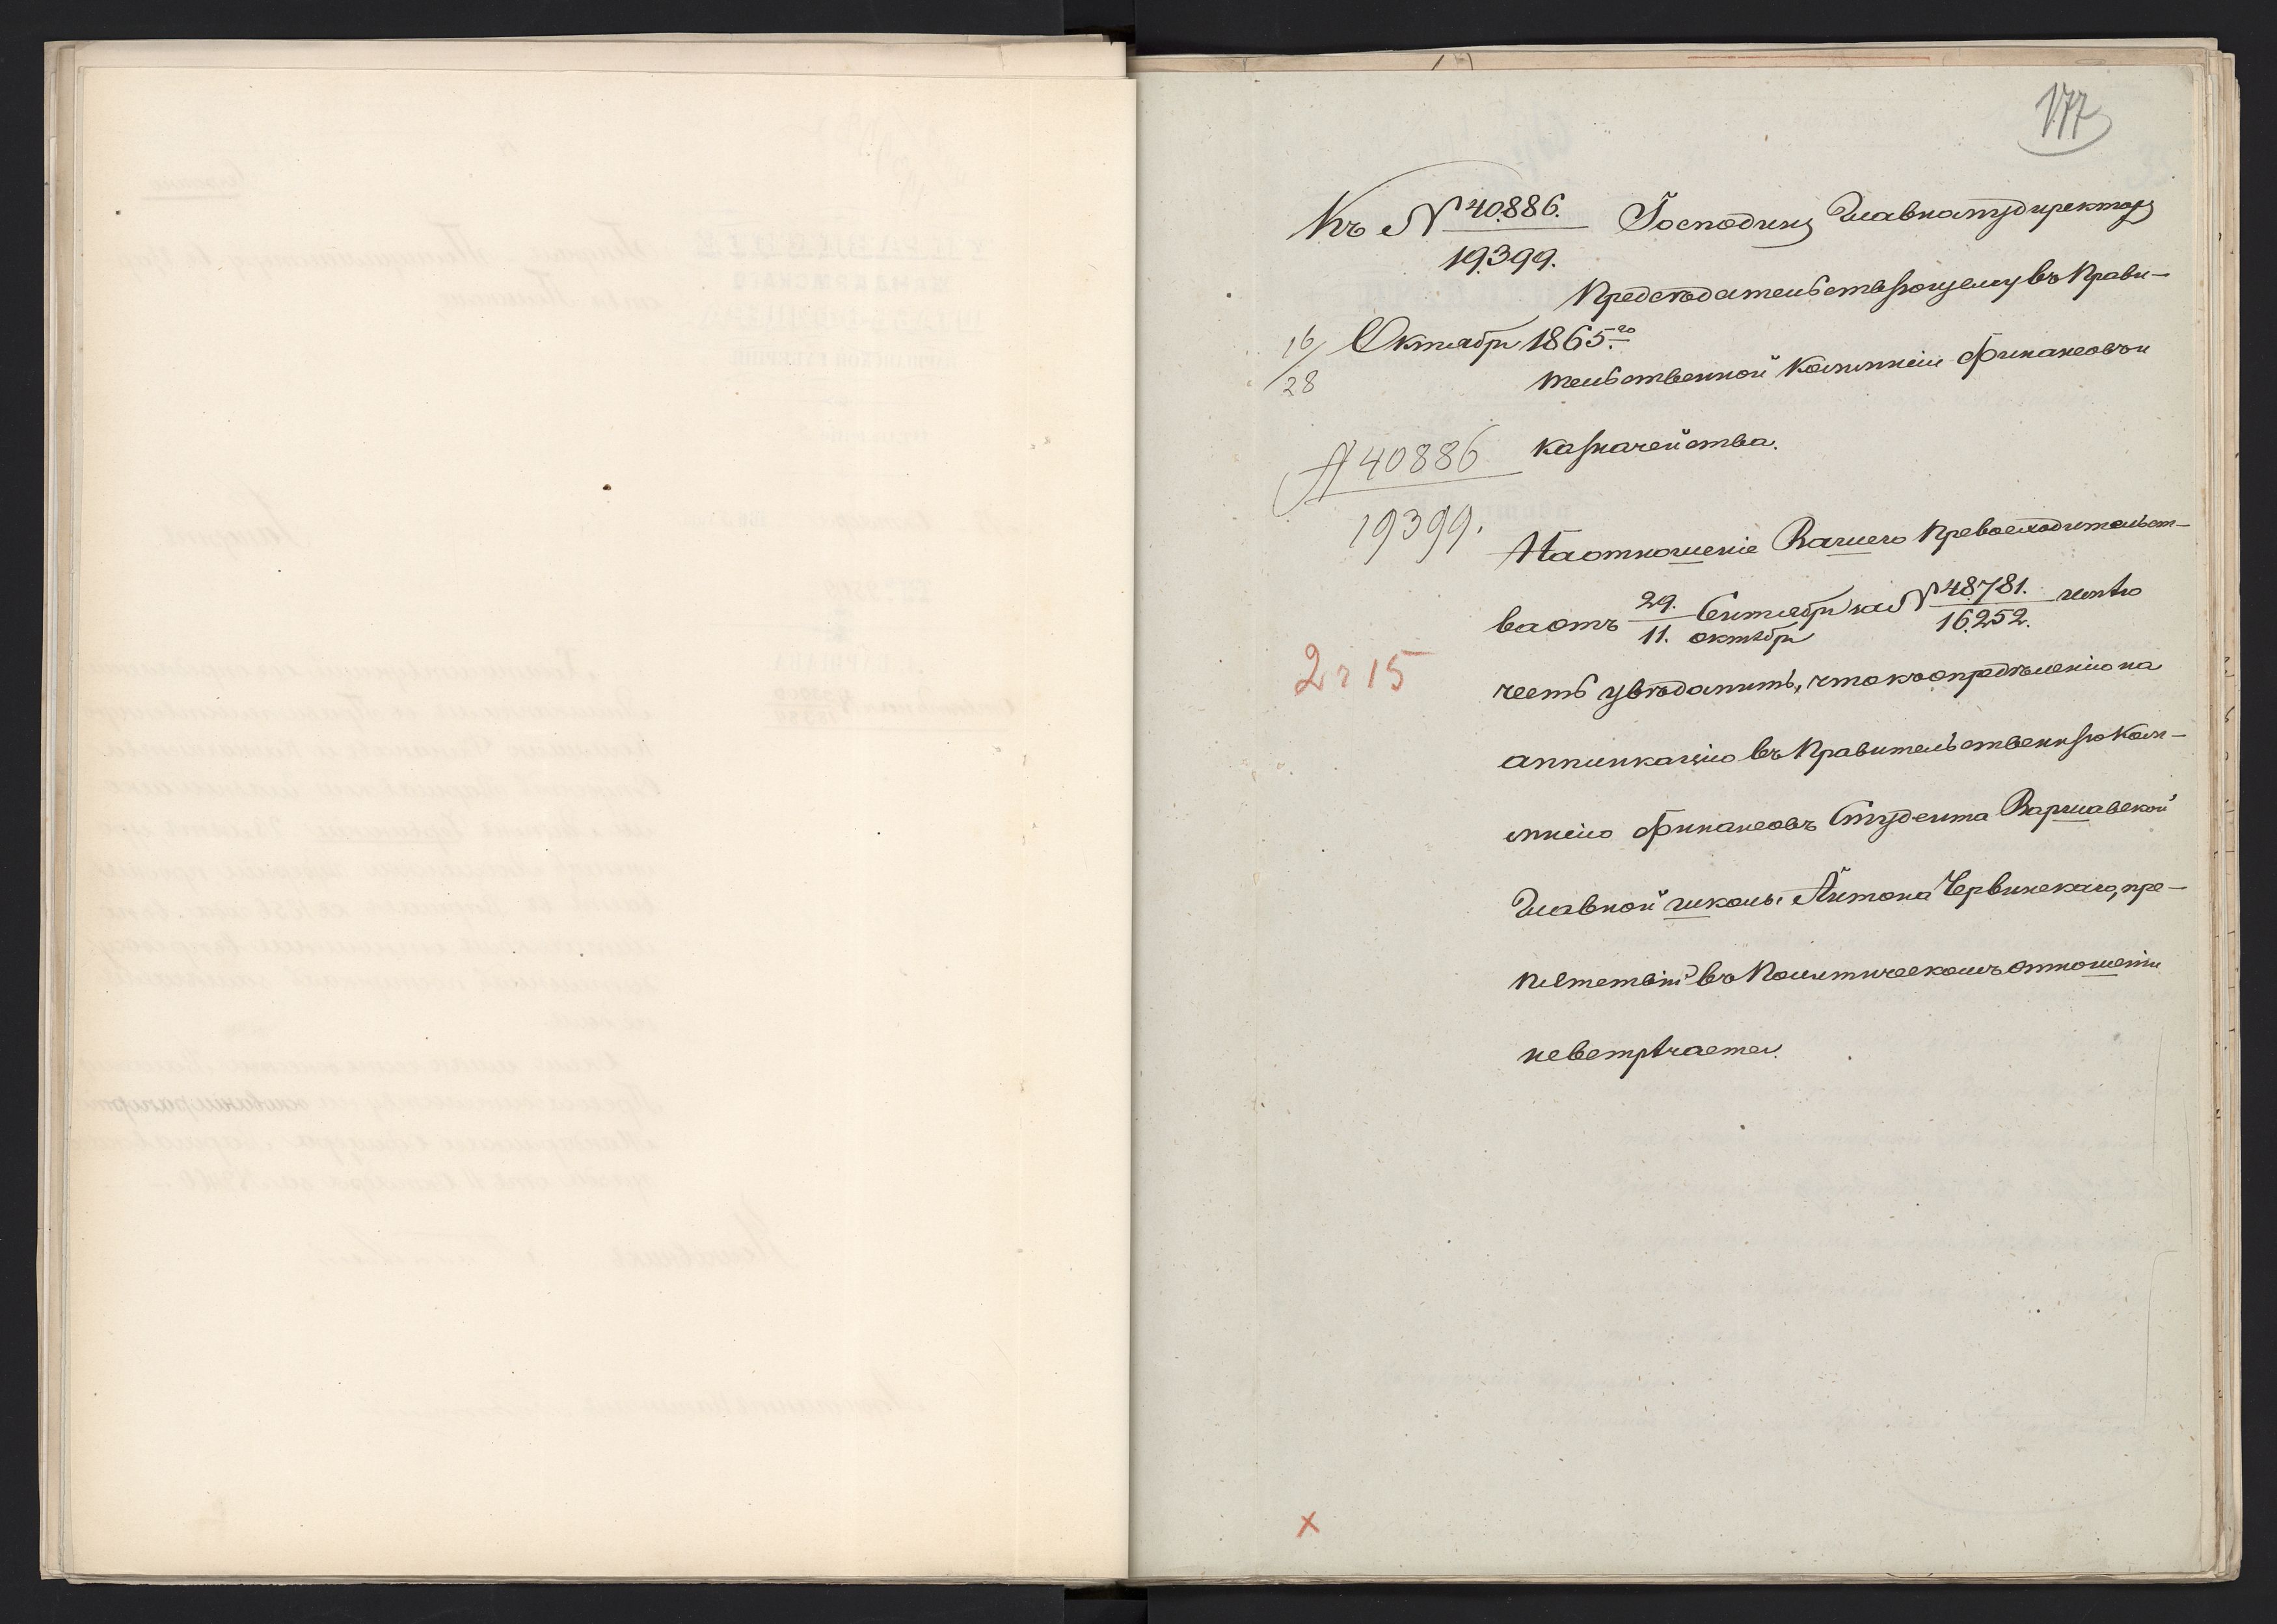 177
Къ № 40886. / 19399. Господину Главнамудиректору
Предсѣдательствующему въ Прави-
16/28 Октября 1865.го
тельственной Коммисіи Финансовъ и
казначейства.
А 40886 / 19399.
На отношеніе Вашего Превосходительст-
ва отъ 29. Сентября / 11. октября за № 48781. / 16252. имѣю
2 г 15
честь увѣдомить, что къ опредѣленію на
аппликацію въ Правительственную Ком-
мисію Финансовъ Студента Варшавской
Главной школы Антона Червинскаго, пре-
пятствій въ Политическомъ отношеніи
не встрѣчается.
х